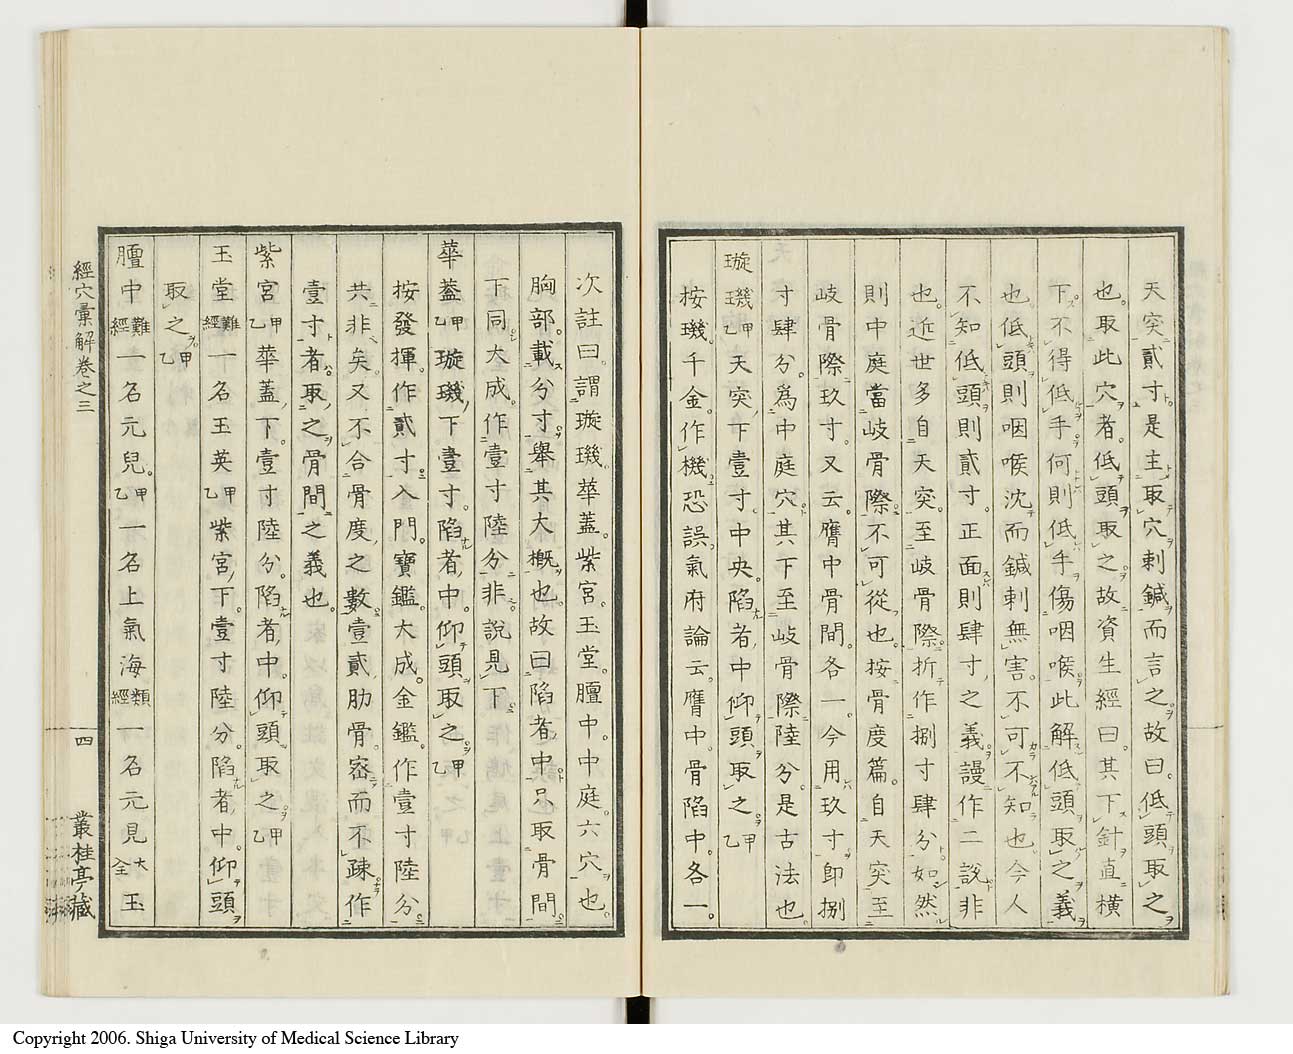 天突貳寸是主取穴刺鍼而言之故曰低頭取之
也取此穴者低頭取之故資生經曰其下針直橫
下不得低手何則低手傷咽喉此解低頭取之義
也低頭則咽喉沈而鍼刺無害不可不知也今人
不知低頭則貳寸正面則肆寸之義謾作二說非
也近世多自天突至岐骨際折作捌寸肆分如然
則中庭當岐骨際不可從也按骨度篇自天突至
岐骨際玖寸又云膺中骨間各一今用玖寸卽捌
寸肆分爲中庭穴其下至岐骨際陸分是古法也
璇璣甲乙天突下壹寸中央陷者中仰頭取之甲乙
按璣千金作機恐誤氣府論云膺中骨陷中各一
次註曰謂璇璣華蓋紫宮玉堂膻中中庭六穴也
胸部載分寸舉其大概也故曰陷者中只取骨間
下同大全大成作壹寸陸分非說見下
華蓋甲乙璇璣下壹寸陷者中仰頭取之甲乙
按發揮作貳寸入門寶鑑大成金鑑作壹寸陸分
共非矣又不合骨度之數壹貳肋骨密而不疎作
壹寸者取之骨間之義也
紫宮甲乙華蓋下壹寸陸分陷者中仰頭取之甲乙
玉堂難經一名玉英甲乙紫宮下壹寸陸分陷者中仰頭
取之甲乙
膻中難經一名元兒甲乙一名上氣海類經一名元見大全玉
經穴彙解卷之三
四
叢桂亭藏
Copyright 2006. Shiga University of Medical Science Library